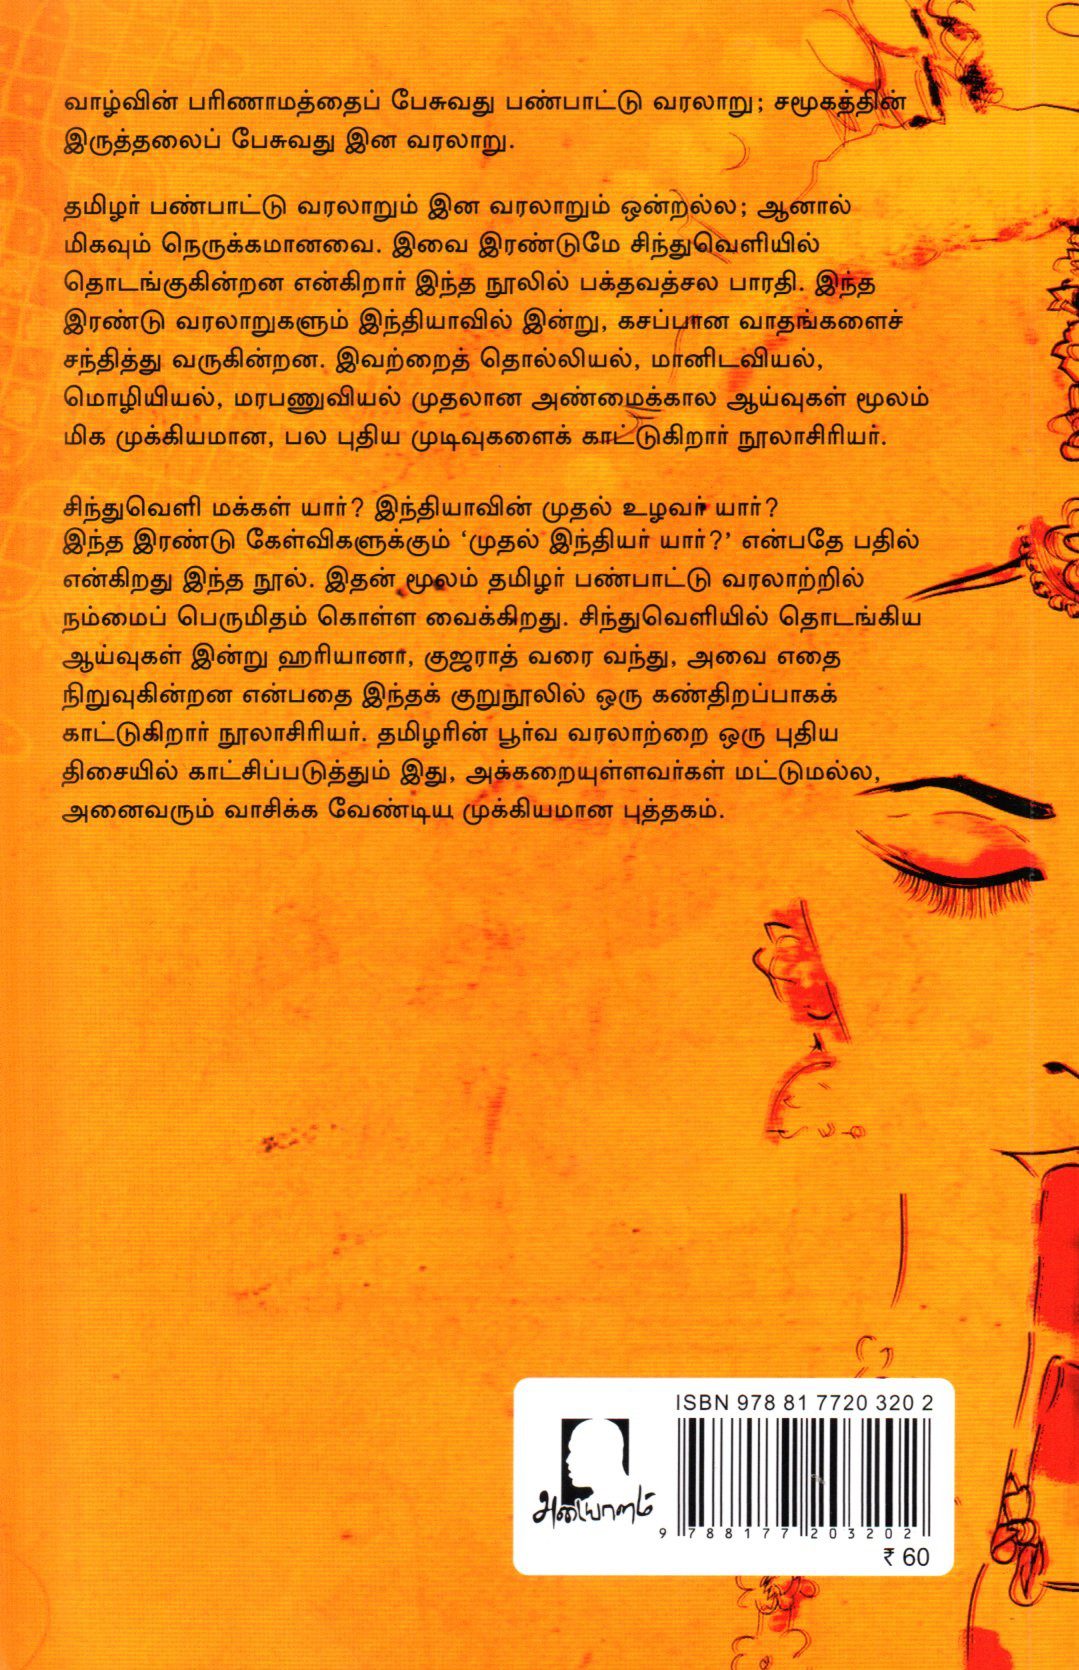 வாழ்வின் பரிணாமத்தைப் பேசுவது பண்பாட்டு வரலாறு; சமூகத்தின்
இருத்தலைப் பேசுவது இன வரலாறு.
தமிழர் பண்பாட்டு வரலாறும் இன வரலாறும் ஒன்றல்ல; ஆனால்
மிகவும் நெருக்கமானவை. இவை இரண்டுமே சிந்துவெளியில்
தொடங்குகின்றன என்கிறார் இந்த நூலில் பக்தவத்சல பாரதி. இந்த
இரண்டு வரலாறுகளும் இந்தியாவில் இன்று, கசப்பான வாதங்களைச்
சந்தித்து வருகின்றன. இவற்றைத் தொல்லியல், மானிடவியல்,
மொழியியல், மரபணுவியல் முதலான அண்மைக்கால ஆய்வுகள் மூலம்
மிக முக்கியமான, பல புதிய முடிவுகளைக் காட்டுகிறார் நூலாசிரியர்.
சிந்துவெளி மக்கள் யார்? இந்தியாவின் முதல் உழவர் யார்?
இந்த இரண்டு கேள்விகளுக்கும் ‘முதல் இந்தியர் யார்?’ என்பதே பதில்
என்கிறது இந்த நூல். இதன் மூலம் தமிழர் பண்பாட்டு வரலாற்றில்
நம்மைப் பெருமிதம் கொள்ள வைக்கிறது. சிந்துவெளியில் தொடங்கிய
ஆய்வுகள் இன்று ஹரியானா, குஜராத் வரை வந்து, அவை எதை
நிறுவுகின்றன என்பதை இந்தக் குறுநூலில் ஒரு கண்திறப்பாகக்
காட்டுகிறார் நூலாசிரியர். தமிழரின் பூர்வ வரலாற்றை ஒரு புதிய
திசையில் காட்சிப்படுத்தும் இது, அக்கறையுள்ளவர்கள் மட்டுமல்ல,
அனைவரும் வாசிக்க வேண்டிய முக்கியமான புத்தகம்.
ISBN 978 81 7720 320 2
அடையாளம்
9 788177 203202
₹ 60